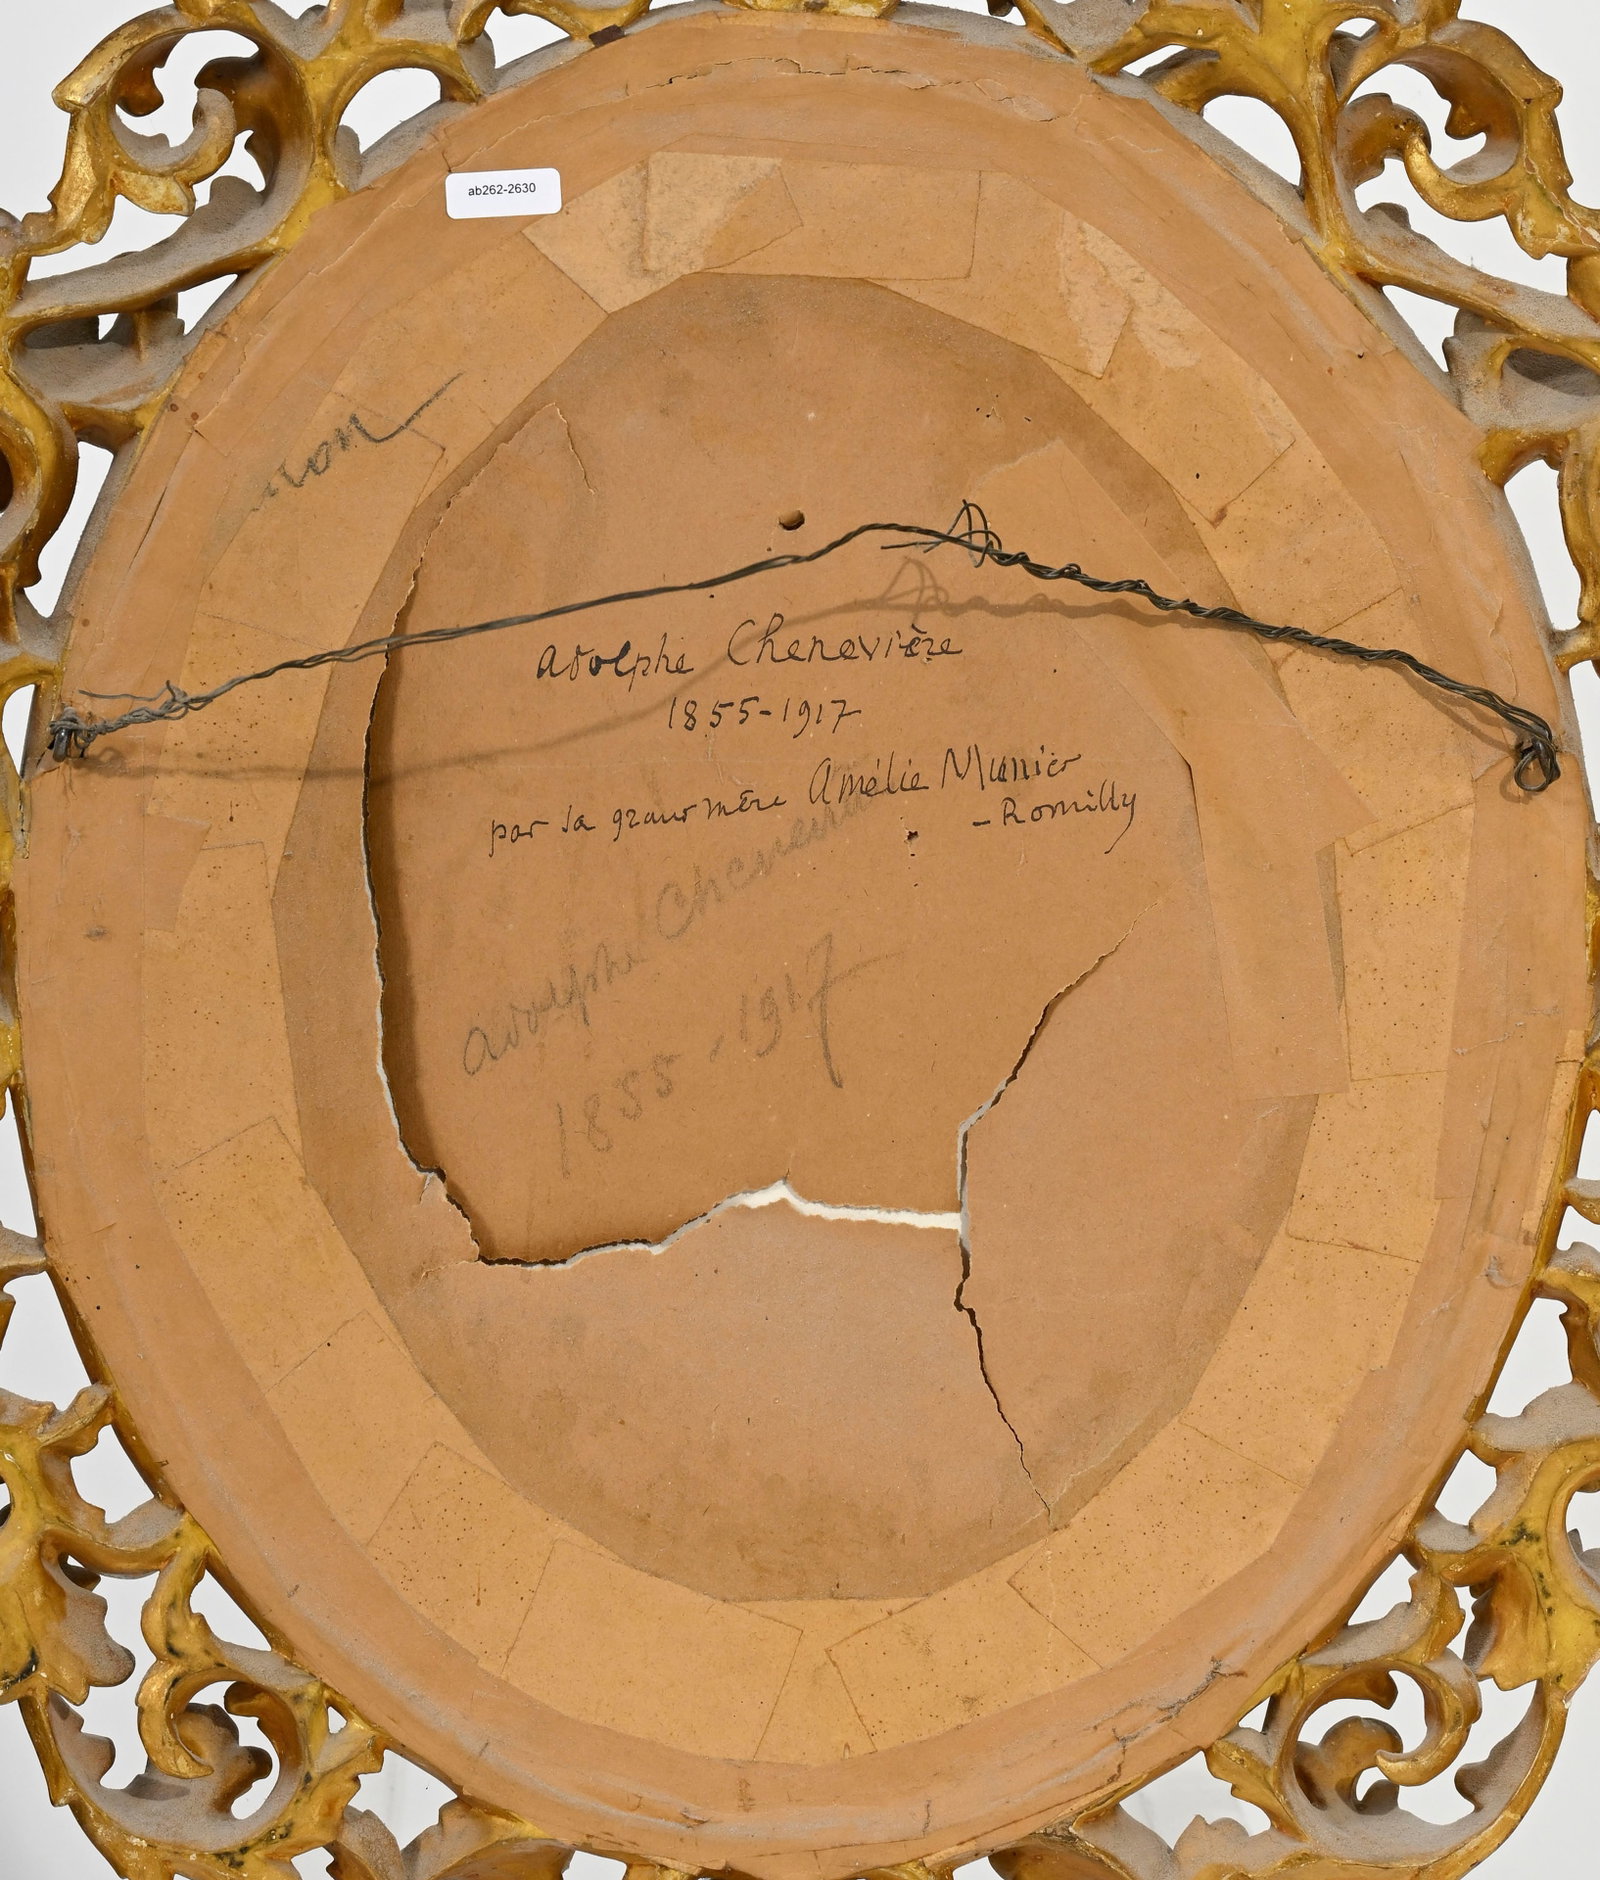 ab262-2630
Adolphe Chenevière
1855-1917
par sa grand mère Amélie Munier
-Romilly
Adolphe Chenevière
1855-1917